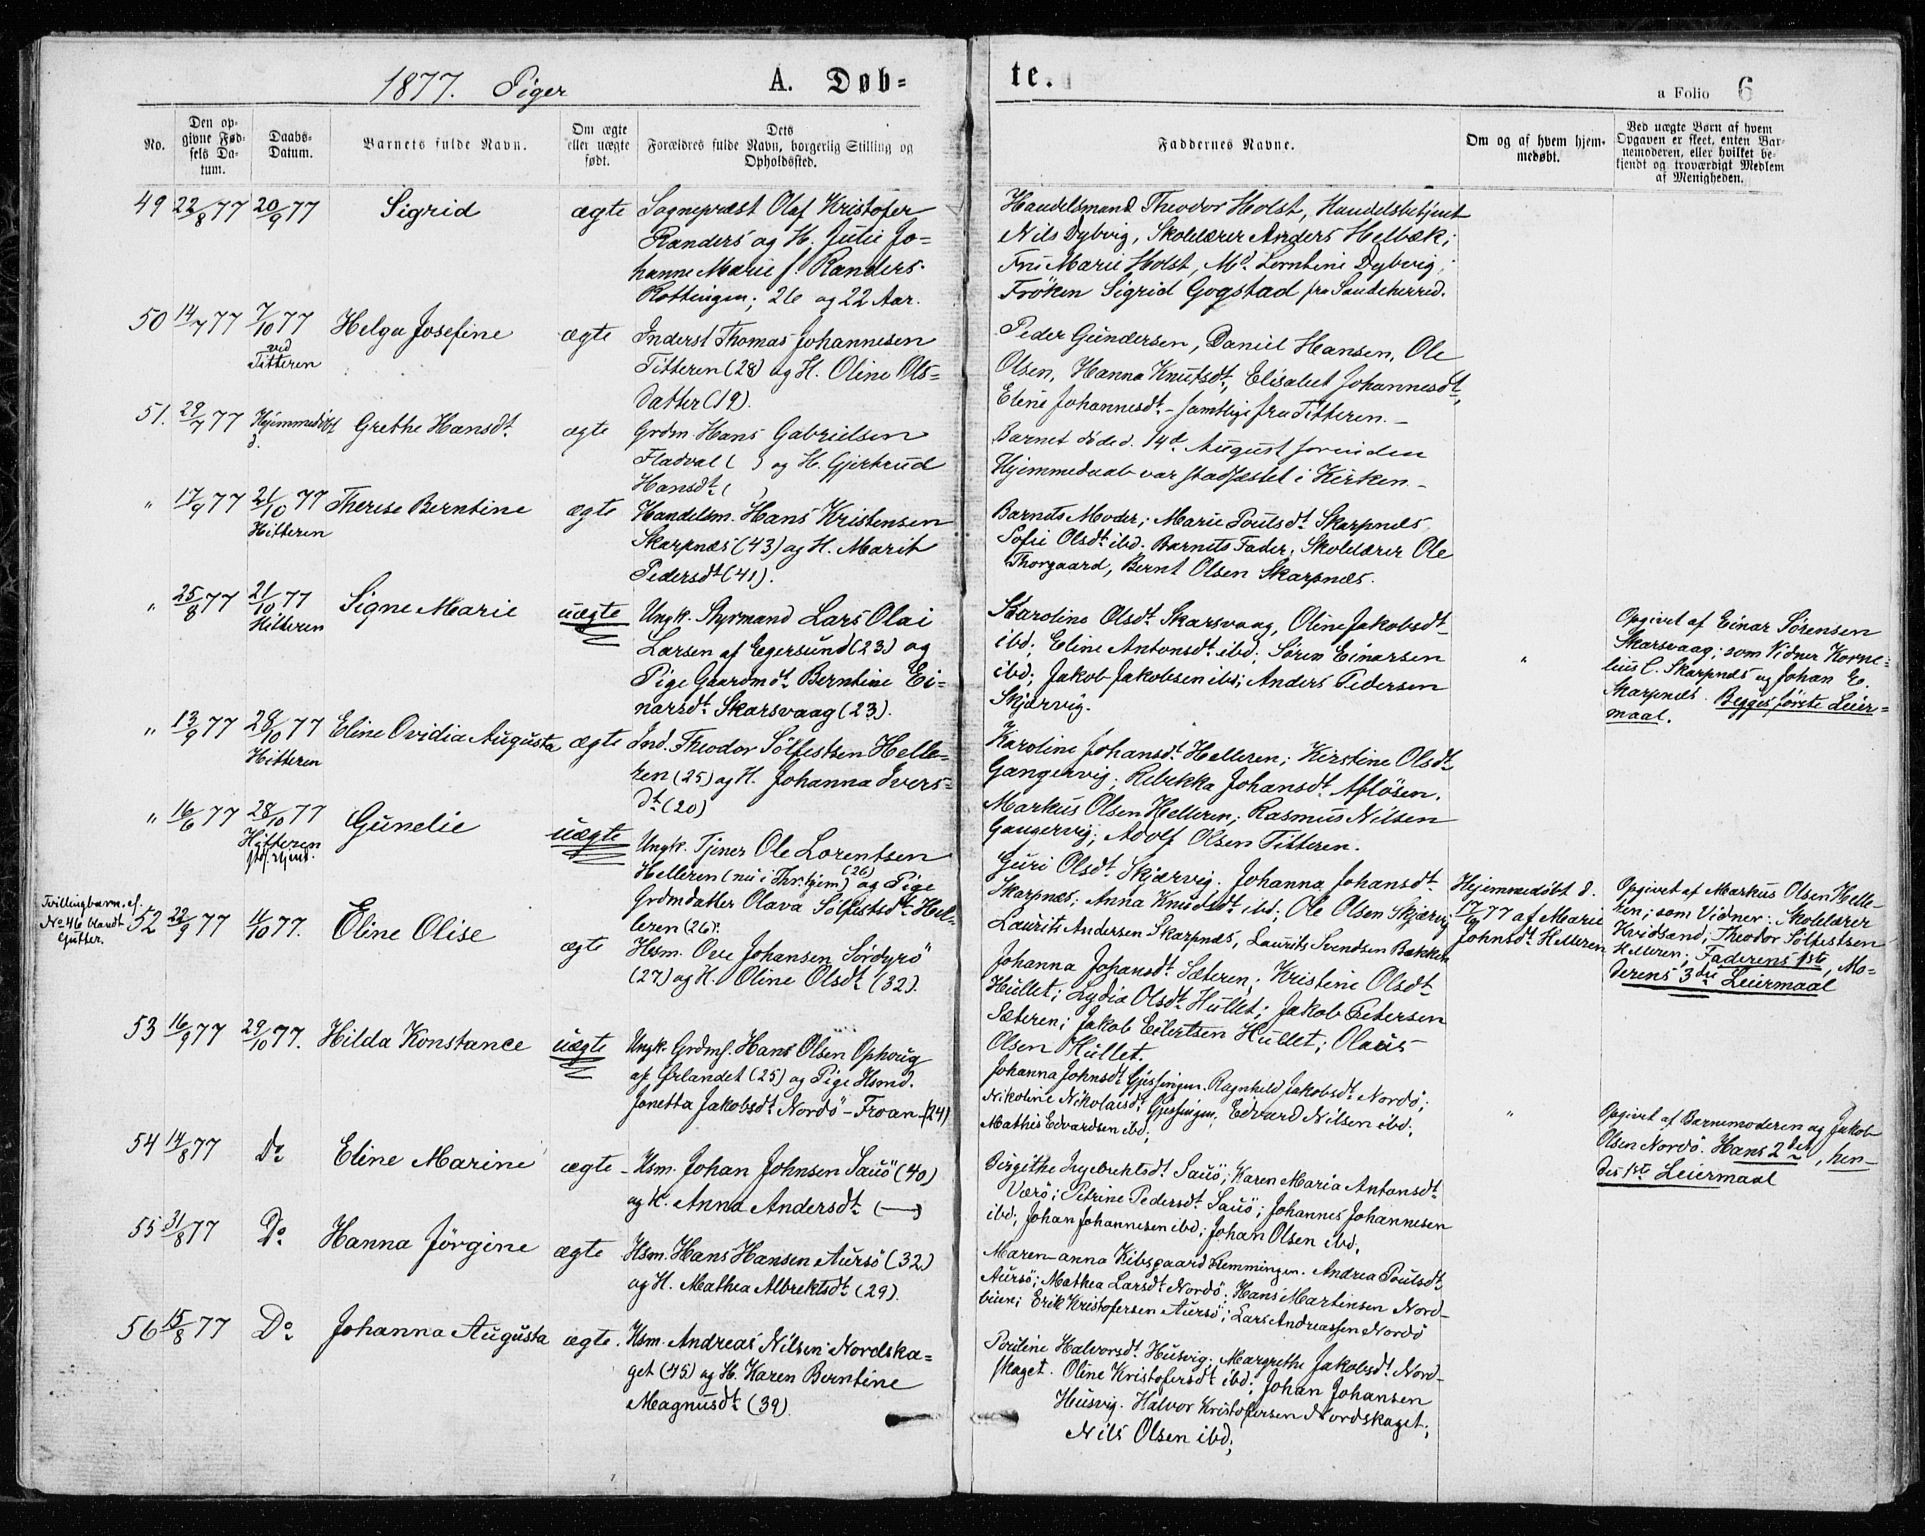 1877. Piger
A. Døb=
te.
a Folio 6
No.
Den op-
givne Fød-
sels Da-
tum.
Daabs-
Datum.
Barnets fulde Navn.
Om ægte
eller uægte
født.
Dets
Forældres fulde Navn, borgerlig Stilling og
Opholdssted.
Faddernes Navne.
Om og af hvem hjem-
medøbt.
Ved uægte Børn af hvem
Opgaven er skeet, enten Bar-
nemoderen, eller hvilket be-
kjendt og troværdigt Medlem
af Menigheden.
49 22/8 77 20/9 77 Sigrid ægte
Sognepræst Olaf Kristofer
Randers og H. Julie Jo=
hanne Marie f. Randers.
Kottingen; 26 og 22 Aar.
Handelsmand Theodor Holst, Handelsbetjent
Nils Dybvig, Skolelærer Anders Helbæk;
Fru Marie Holst, Md. Lerntine Dybvig,
Fröken Sigrid Gogstad fra Sandeherred.
50 14/7 77 7/10 77
ved
Titteren
Helga Josefine ægte
Inderst Thomas Johannesen
Titteren (28) og H. Oline Ols=
datter (19).
Peder Gundersen, Daniel Hansen, Ole
Olsen, Hanna Knutsdt., Elisabet Johannesdt.,
Eline Johannesdt. - samtlige fra Titteren. -
51. 29/7 77 Hjemmedöbt
d.
Grethe Hansdt. ægte
Grdm Hans Gabrielsen
Fladval ( ) og H. Gjertrud
Hansdt. ( )
Barnet döde d. 14d. August forinden
Hjemmedaab var stadfæstet i Kirken. -
" 17/9 77 21/10 77
Hitteren
Therese Berntine ægte
Handelsm. Hans Kristensen
Skarpnæs (43) og H. Marit
Pedersdt. (41).
Barnets Moder; Marie Poulsdt. Skarpnæs
Sofie Olsdt. ibd; Barnets Fader; Skolelærer Ole
Thorgaard, Bernt Olsen Skarpnæs.
" 25/8 77 21/10 77
Hitteren
Signe Marie uægte
Ungk. Styrmand Lars Olai
Larsen af Egersund (23) og
Pige Gaardmdt. Berntine Ei=
narsdt. Skarsvaag (23).
Karoline Olsdt. Skarsvaag, Oline Jakobsdt.
ibd; Eline Antonsdt. ibd; Sören Einarsen
ibd; Jakob Jakobsen ibd; Anders Pedersen
Skjærvig.
"
Opgivet af Einar Sörensen
Skarsvaag; som Vidner Korne=
lius C. Skarpnæs og Johan E.
Skarpnæs. Begges förste Leier=
maal.
" 13/9 77 28/10 77
Hitteren
Eline Ovidia Augusta ægte
Ind. Theodor Sölfestsen Helle-
ren (25) og H. Johanna Ivers=
dt. (20)
Karoline Johansdt. Helleren; Kirstine Olsdt.
Gangervig; Rebekka Johansdt. Aflösen.
Markus Olsen Helleren; Rasmus Nilsen
Gangervig; Adolf Olsen Titteren.
" 16/6 77 28/10 77
Hitteren
Gunelie uægte
Ungk. Tjener Ole Lorentsen
Helleren (nu i Thr.hjem) (26) og Pige
Grdmdatter Olava Sölfestsdt. Hel-
leren (26).
Guri Olsdt. Skjærvig. Johanna Johansdt.
Skarpnæs; Anna Knudsdt. ibd; Ole Olsen Skjærvig
Laurits Andersen Skarpnæs, Laurits Svendsen Bakken
Hjemmedöbt d.
17/6 77 af Marie
Johnsdt. Helleren
Opgivet af Markus Olsen Helle-
ren; som Vidner: Skolelærer
Kvidsand, Theodor Sölfestsen
Helleren; Faderens 1ste, Mo-
derens 3die Leiermaal
Tvillingbarn, cf.
No 46 blandt
Gutter.
52 22/9 77 14/10 77. Eline Olise ægte
Hsm. Ove Johansen Sördyrö
(27) og H. Oline Olsdt. (32).
Johanna Johansdt. Sæteren; Kristine Olsdt.
Hullet; Lydia Olsdt. Hullet; Jakob Petersen
Sæteren; Jakob Eilertsen Hullet; Olaus
Olsen Hullet.
53 16/9 77 29/10 77. Hilda Konstance uægte
Ungk. Grdms. Hans Olsen Ophoug
af Ørlandet (25) og Pige Hsmd.
Jonetta Jakobsdt. Nordö - Froan - (24)
Johanna Johnsdt. Gjessingen. Ragnhild Jakobsdt. Nordö;
Nikoline Nikolaisdt. Gjessingen; Edvard Nilsen ibd;
Mathis Edvardsen ibd;
"
Opgivet af Barnemoderen og Jakob
Olsen Nordö. Hans 2det, hen-
des 1ste Leiermaal
54 14/8 77 Do. Eline Marine ægte
Hsm. Johan Johnsen Sauö (40)
og H. Anna Andersdt. (—)
Birgithe Ingebrektsdt. Sauö; Karen Maria Antonsdt.
Værö; Petrine Pedersdt. Sauö; Johannes Johannesen
ibd; Johan Johannesen ibd; Johan Olsen ibd.
55 31/8 77 Do. Hanna Jörgine ægte
Hsm. Hans Hansen Aursö (32)
og H. Mathea Albrektsdt. (29).
Maren-anna Kibsgaard Hemmingen. Andrea Poulsdt.
Aursö; Mathea Larsdt. Nordö; Hans Martinsen Nord-
buen; Erik Kristofersen Aursö; Lars Andreassen Nordö
56 15/8 77 Do. Johanna Augusta ægte.
Hsm. Andreas Nilsen Nordska=
get (45) og H. Karen Berntine
Magnusdt. (39)
Pouline Halvorsdt. Husvig; Margrethe Jakobsdt. Nord-
skaget. Oline Kristofersdt. ibd; Johan Johansen
Husvig. Halvor Kristofersen Nordskaget;
Nils Olsen ibd;